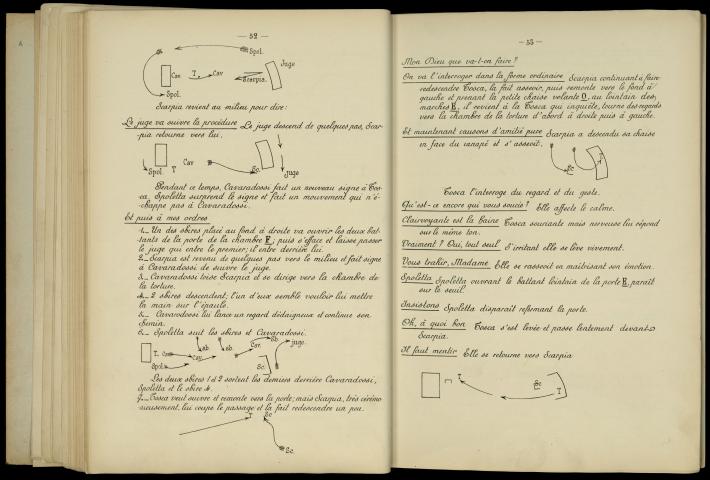 — 52 —
Spol.
Juge
Cav.
T. Cav
Scarpia.
Spol.
Scarpia revient au milieu pour dire:
Le juge va suivre la procédure Le juge descend de quelques pas, Scar-
pia retourne vers lui.
Spol. T Cav Sc. juge
Pendant ce temps, Cavaradossi fait un nouveau signe à Tos-
ca. Spoletta surprend le signe et fait un mouvement qui n'é-
chappe pas à Cavaradossi.
Et puis à mes ordres
1._ Un des sbires placé au fond à droite va ouvrir les deux bat-
tants de la porte de la chambre F; puis s'efface et laisse passer
le juge qui entre le premier; il entre derrière lui.
2._ Scarpia est revenu de quelques pas vers le milieu et fait signe
à Cavaradossi de suivre le juge.
3._ Cavaradossi toise Scarpia et se dirige vers la chambre de
la torture.
4._ 2 sbires descendent; l'un d'eux semble vouloir lui mettre
la main sur l'épaule.
5._ Cavarodossi lui lance un regard dédaigneux et continue son
chemin.
6._ Spoletta suit les sbires et Cavaradossi.
sb. sb. Cav. Sb. juge.
T. Cav. cav.
Spol. Sc.
Les deux sbires 1 & 2 sortent les derniers derrière Cavaradossi,
Spoletta et le sbire 4.
7._ Tosca veut suivre et remonte vers la porte; mais Scarpia, très cérémo-
nieusement, lui coupe le passage et la fait redescendre un peu.
T Sc
Sc.
— 53 —
Mon Dieu que va-t-on faire?
On va l'interroger dans la forme ordinaire Scarpia continuant à faire
redescendre Tosca, la fait asseoir, puis remonte vers le fond à
gauche et prenant la petite chaise volante O, au lointain des
marches E, il revient à la Tosca qui inquiète, tourne des regards
vers la chambre de la torture d'abord à droite puis à gauche.
Et maintenant causons d'amitié pure Scarpia a descendu sa chaise
en face du canapé et s'asseoit.
Sc. T
Tosca l'interroge du regard et du geste.
Qu'est-ce encore qui vous soucis? Elle affecte le calme.
Clairvoyante est la haine Tosca souriante mais nerveuse lui répond
sur le même ton.
Vraiment? Oui, tout seul S'irritant elle se lève vivement.
Vous trahir, Madame Elle se rasseoit en maîtrisant son émotion.
Spoletta Spoletta ouvrant le battant lointain de la porte E, paraît
sur le seuil.
Insistons Spoletta disparaît refermant la porte.
Oh, à quoi bon Tosca s'est levée et passe lentement devant
Scarpia.
Il faut mentir Elle se retourne vers Scarpia
T. Sc T